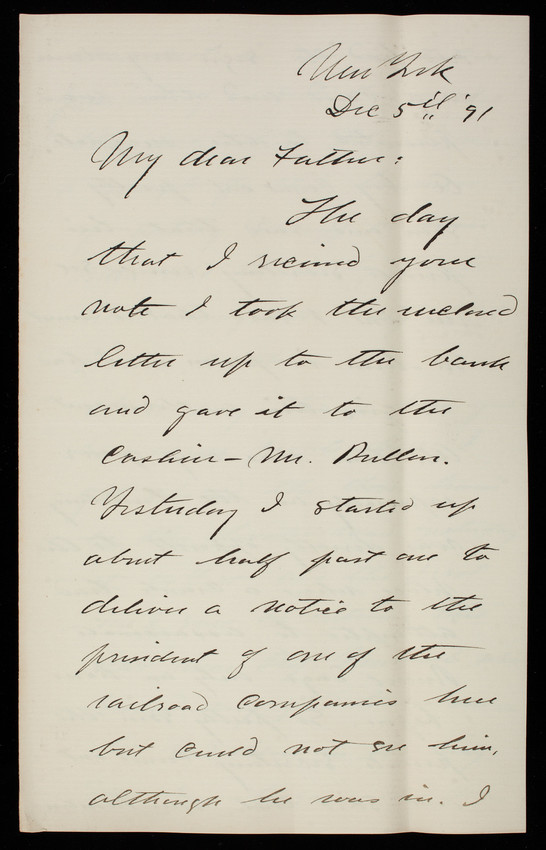 New York
Dec 5th '91
My dear Father:
The day
that I recieved your
note I took the inclosed
letter up to the bank
and gave it to the
Cashier - Mr. Pullen.
Yesterday I started up
about half past one to
deliver a notice to the
president of one of the
railroad companies here
but could not see him,
although he was in. I